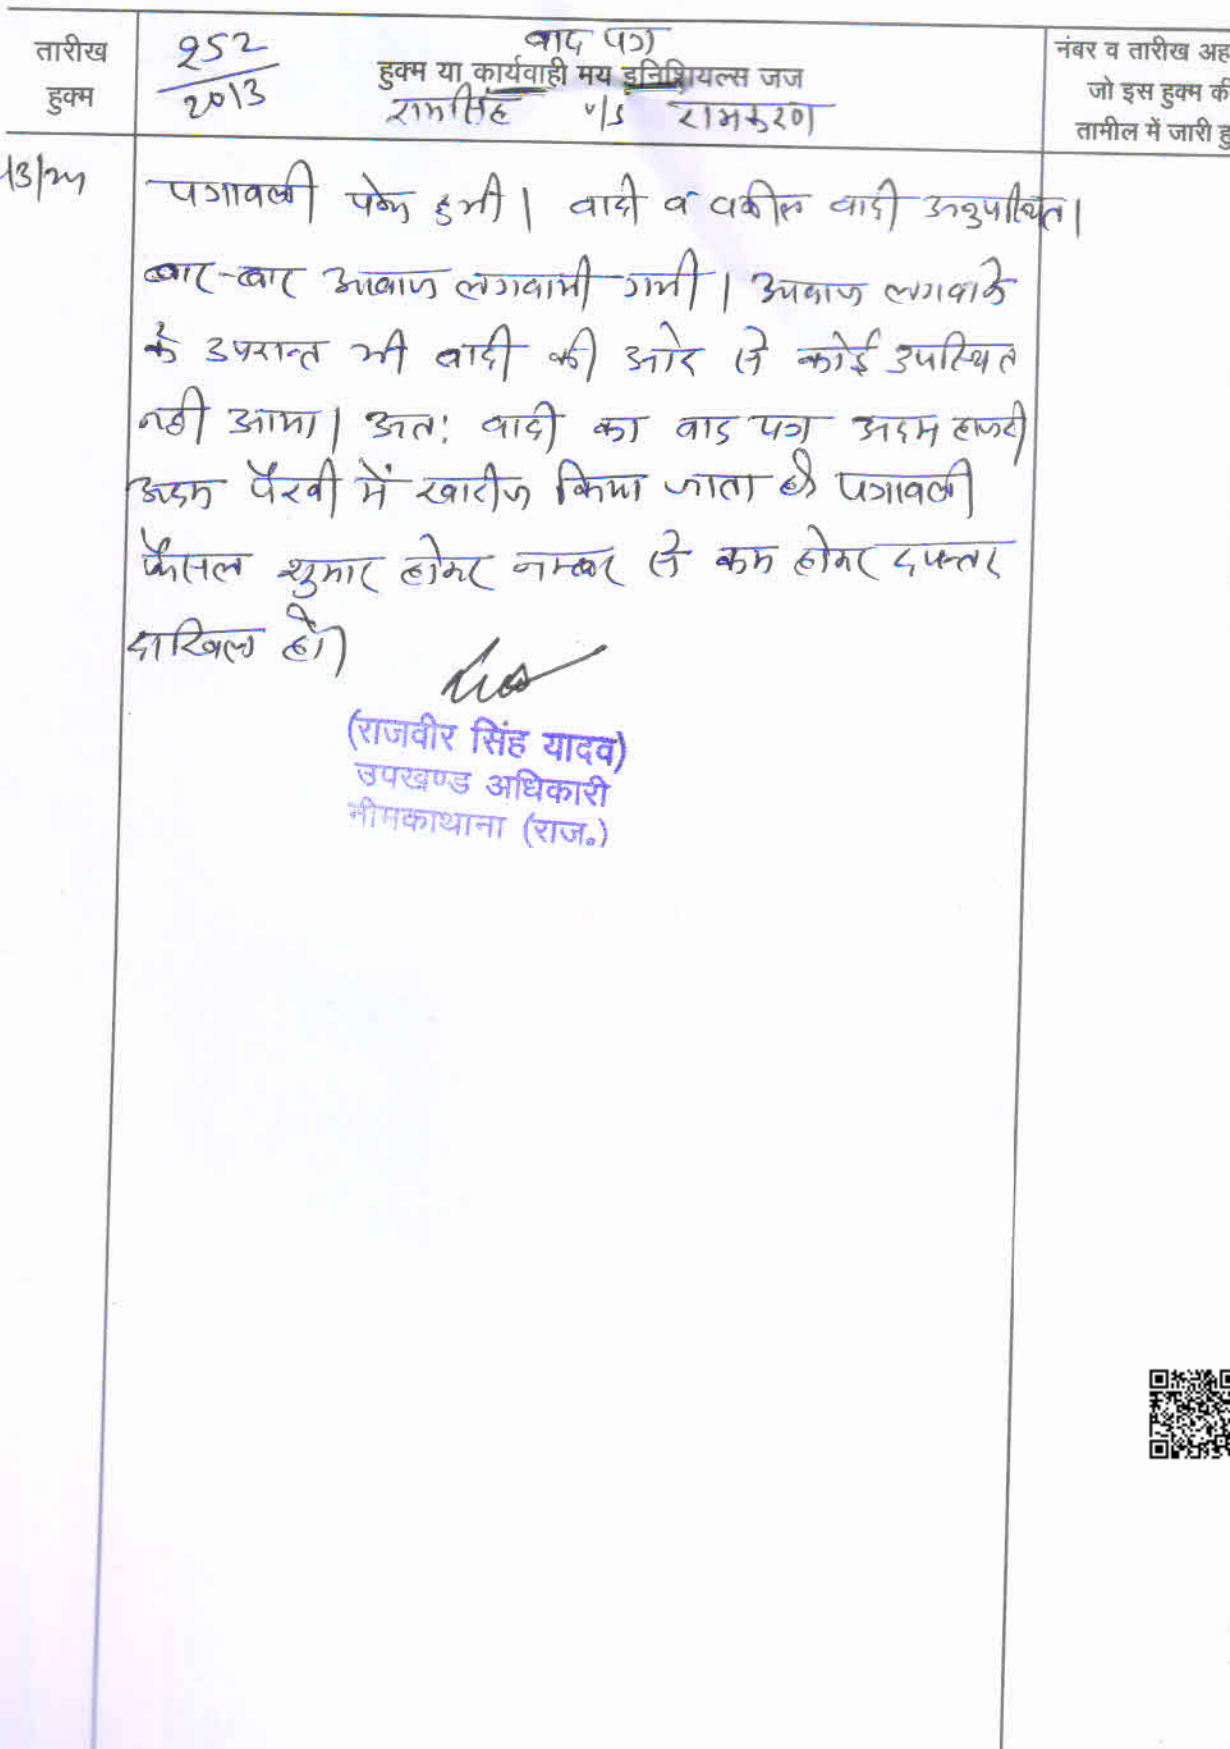 तारीख
हुक्म
252
2013
वाद पत्र
हुक्म या कार्यवाही मय इनिशियल्स जज
रामसिंह v/s रामकरण
नंबर व तारीख अह
जो इस हुक्म की
तामील में जारी हु
पत्रावली पेश हुयी। वादी व वकील वादी अनुपस्थित।
बार-बार आवाज लगवायी गयी। आवाज लगवाने
के उपरान्त भी वादी की ओर से कोई उपस्थित
नही आया। अतः वादी का वाद पत्र अदम हाजरी
अदम पैरवी में खारीज किया जाता है पत्रावली
फैसल शुमार होकर नम्बर से कम होकर दफ्तर
दाखिल हो।
(राजवीर सिंह यादव)
उपखण्ड अधिकारी
नीमकाथाना (राज.)